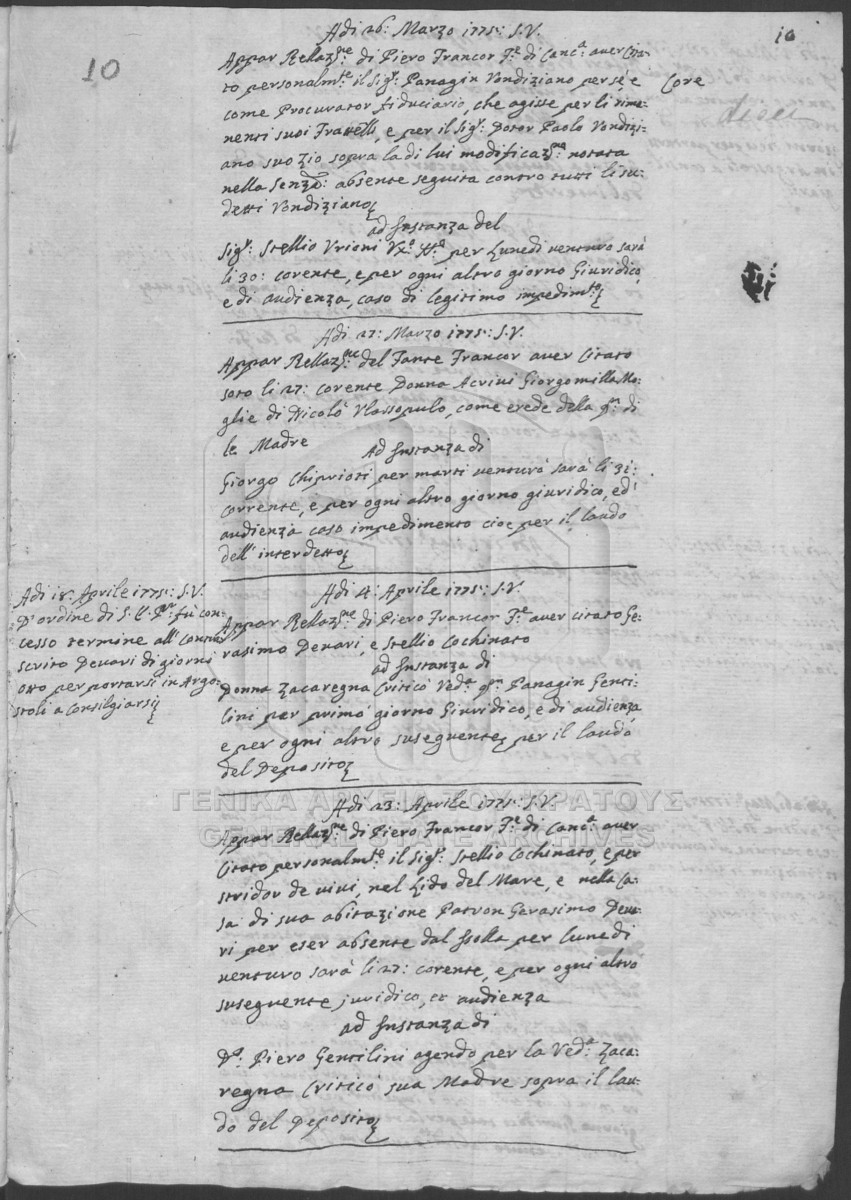 10
10
Adi 26: Marzo 1775: S.V.
Appar Rellaz:ne di Piero Francor F:te di Canc:a aver Cita-
to personalm:te il Sig:r Panagin Vondiziano per sè, e
Core
come Procurator fiduciario, che agisse per li rima-
dieci
nenti suoi Fratelli, e per il Sig:r Dotor Paolo Vondizi-
ano suo Zio sopra la di lui modificaz:ne notata
nella Senza: absente seguita contro tutti li su-
detti Vondiziano
ad Instanza del
Sig:r Stellio Vrioni per Lunedì venturo sarà
li 30: corente, e per ogni altro giorno Giuridico,
e di audienza, caso di legitimo impedim:to
Adi 27: Marzo 1775: S.V.
Appar Rellaz:ne del Fante Francor aver Citato
soto li 27: corente Donna Acrivi Giorgomilla Mo-
glie di Nicolò Vlassopulo, come erede della q:m di
le Madre
Ad Instanza di
Giorgo Chiprioti per marti venturò sarà li 31:
corrente, e per ogni altro giorno giuridico, ed
audienza caso impedimento cioè per il laudo
dell'interdetto
Adi 18: Aprile 1775: S.V.
D'ordine di S. E. P:r fù con-
cesso termine all'
scrito Devari di giorni
otto per portarsi in Argo-
stoli a Consilgiarsi
Adi 4: Aprile 1775: S.V.
Appar Rellaz:ne di Piero Francor F:te aver citato Ge-
rasimo Devari, e Stellio Cochinato
ad Instanza di
Donna Zacaregna Criticò Ved:a q:m Panagin Genti-
lini per primo giorno Giuridico, e di audienza,
e per ogni altro suseguente per il laudo
del Deposito
ΓΕΝΙΚΑ ΑΡΧΕΙΑ ΤΟΥ ΚΡΑΤΟΥΣ
GENERAL STATE ARCHIVES
Adi 23: Aprile 1775: S.V.
Appar Rellaz:ne di Piero Francor F:te di Canc:a aver
Citato personalm:te il Sig:r Stellio Cochinato, e per
stridor de vivi, nel Lido del Mare, e nella Ca-
sa di sua abitazione Patron Gerasimo Deva-
ri per eser absente dal Isolla per lunedi
venturo sarà li 27: corente, e per ogni altro
suseguente juridico, et audienza
ad Instanza di
D:n Piero Gentilini agendo per la Ved:a Zaca-
regna Criticò sua Madre sopra il lau-
do del Deposito